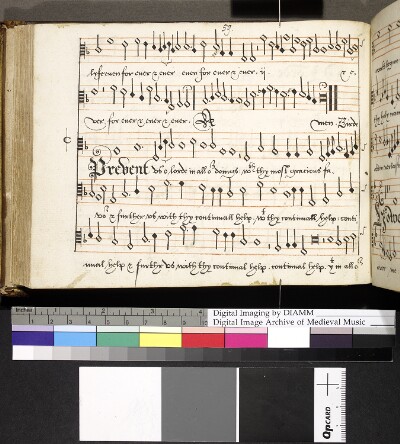 59
lyfe euen for euer & euer euen for euer & euer . ij
uer . for euer & euer & euer . A men .
Prevent vs o lorde in all or doinges, wth thy most gracious fa,
vor & further vs with thy continuall help , wt thy continuall help , conti
nuall help & further vs with thy continual help . continual help . yt in all or
inches
Digital Imaging by DIAMM
Digital Image Archive of Medieval Music
QPCARD